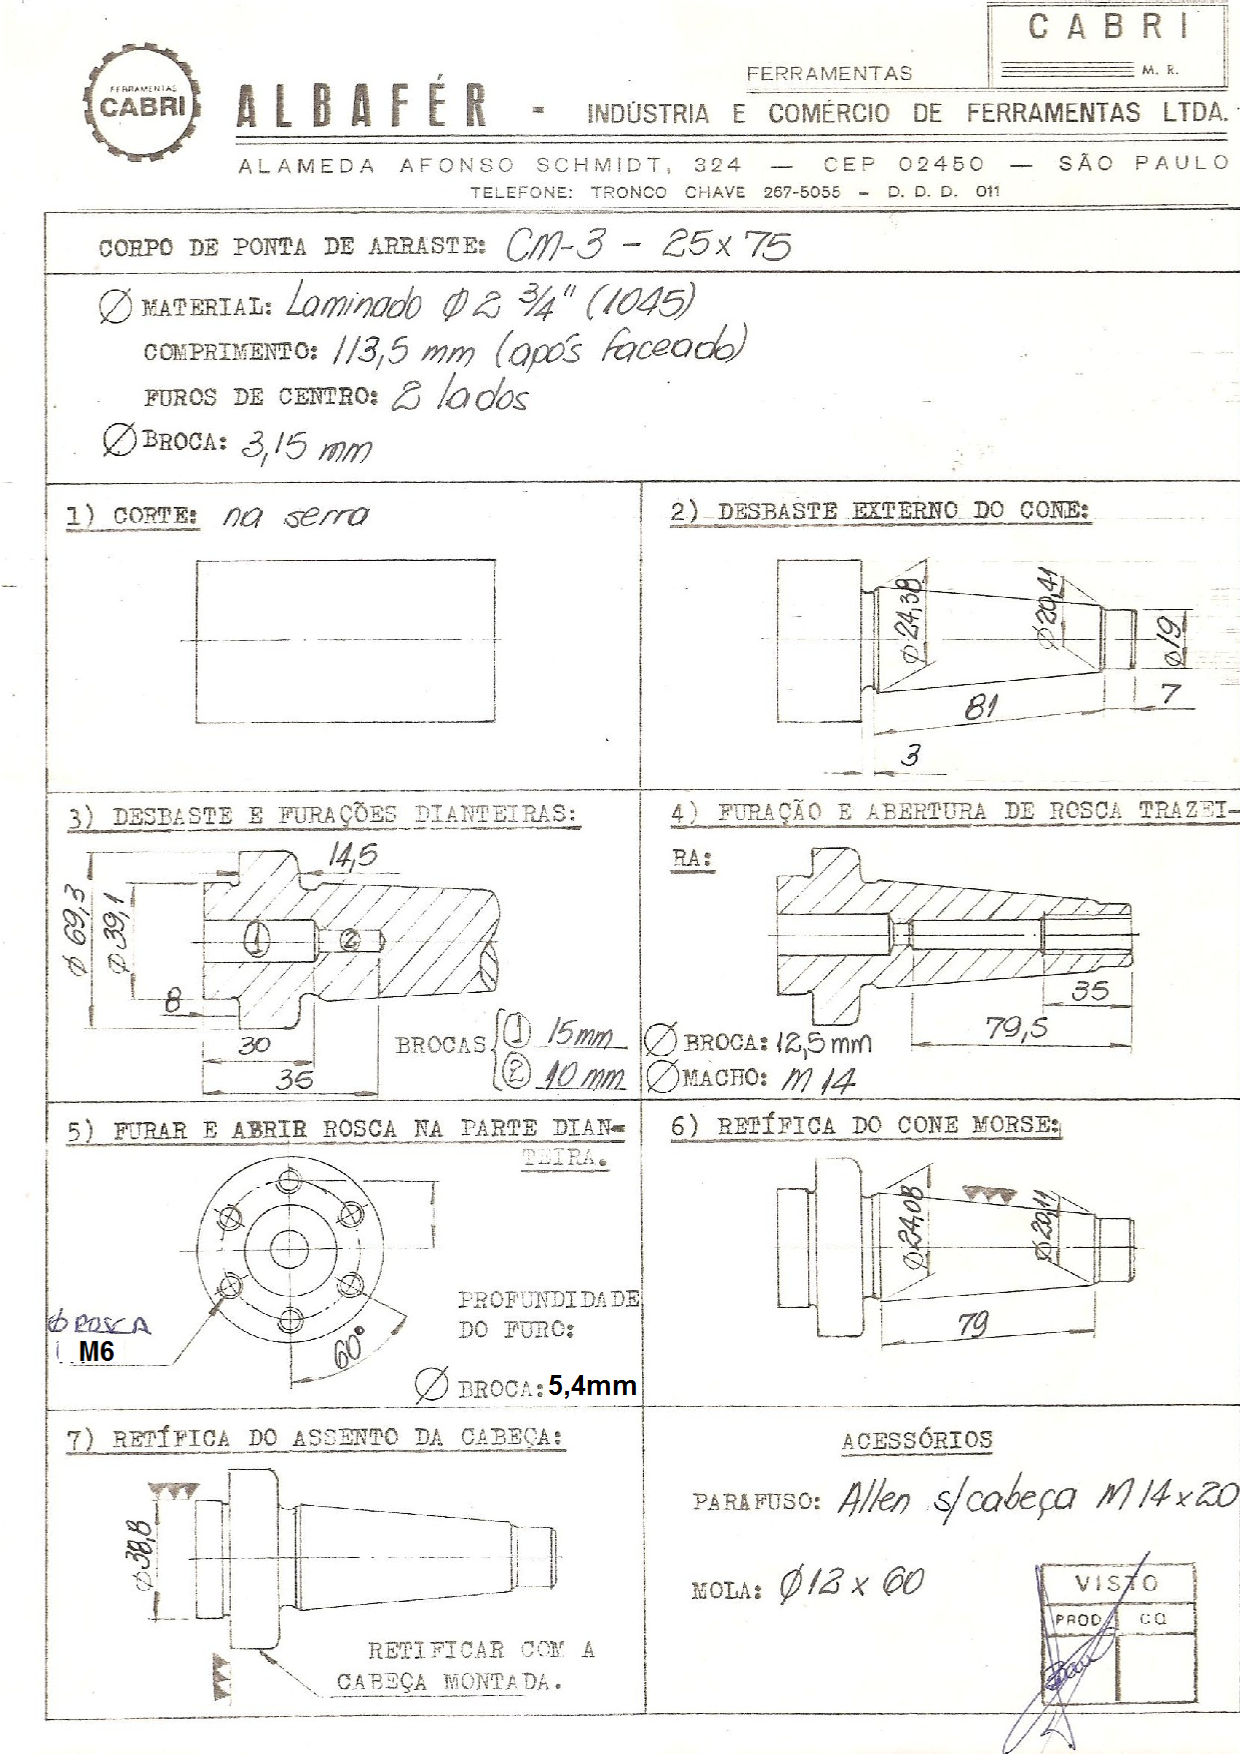 CABRI
M. R.
FERRAMENTAS
FERRAMENTAS
CABRI
ALBAFÉR - INDÚSTRIA E COMÉRCIO DE FERRAMENTAS LTDA.
ALAMEDA AFONSO SCHMIDT, 324 — CEP 02450 — SÃO PAULO
TELEFONE: TRONCO CHAVE 267-5055 - D. D. D. 011
CORPO DE PONTA DE ARRASTE: CM-3 - 25x75
Ø MATERIAL: Laminado Ø 2 3/4" (1045)
COMPRIMENTO: 113,5 mm (após faceado)
FUROS DE CENTRO: 2 lados
Ø BROCA: 3,15 mm
1) CORTE: na serra
2) DESBASTE EXTERNO DO CONE:
Ø24,38
Ø20,41
Ø19
81
7
3
3) DESBASTE E FURAÇÕES DIANTEIRAS:
14,5
Ø 69,3
Ø 39,1
1
2
8
30
35
BROCAS
1 15mm
2 10 mm
4) FURAÇÃO E ABERTURA DE ROSCA TRAZEI-
RA:
35
79,5
Ø BROCA: 12,5mm
Ø MACHO: M 14
5) FURAR E ABRIR ROSCA NA PARTE DIAN-
TEIRA.
Ø ROSCA
M6
60°
PROFUNDIDADE
DO FURO:
Ø BROCA: 5,4mm
6) RETÍFICA DO CONE MORSE:
Ø24,08
Ø20,11
79
7) RETÍFICA DO ASSENTO DA CABEÇA:
Ø38,8
RETIFICAR COM A
CABEÇA MONTADA.
ACESSÓRIOS
PARAFUSO: Allen s/cabeça M14x20
MOLA: Ø12 x 60
VISTO
PROD. CQ